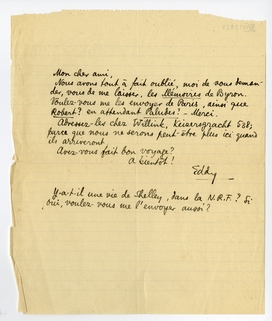 Mon cher ami,
Nous avons tout à fait oublié, moi de vous deman-
der, vous de me laisser, les Mémoires de Byron.
Voulez-vous me les envoyer de Paris, ainsi que
Robert? en attendant Paludes! — Merci.
Adressez-les chez Willink, Keizersgracht 568;
parce que nous ne serons peut-être plus ici quand
ils arriveront.
Avez-vous fait bon voyage?
A bientôt!
Eddy
Y-a-t-il une vie de Shelley, dans la N.R.F.? Si
oui, voulez-vous me l'envoyer aussi?